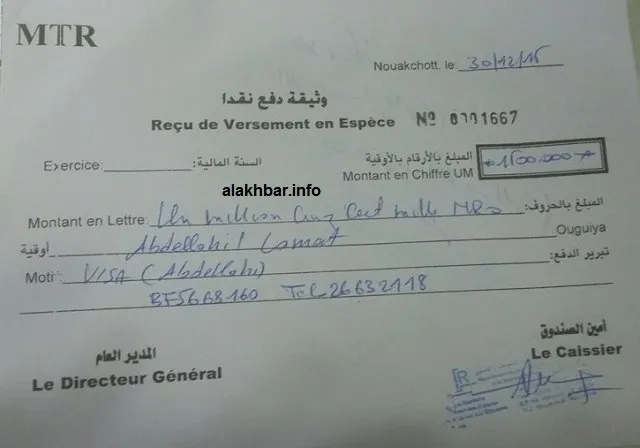 MTR
Nouakchott. le: 30/12/15
وثيقة دفع نقدا
Reçu de Versement en Espèce Nº 0701667
Exercice: السنة المالية:
المبلغ بالأرقام بالأوقية
Montant en Chiffre UM 1500.000
alakhbar.info
Montant en Lettre: Un million Cinq Cent mille MRO المبلغ بالحروف:
Abdellahi Ouguiya أوقية
Motif: VISA (Abdellahi) تبرير الدفع:
BF5668160 Tel 26632118
المدير العام
Le Directeur Général
أمين الصندوق
Le Caissier